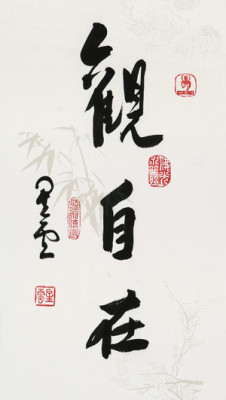 觀自在
星雲